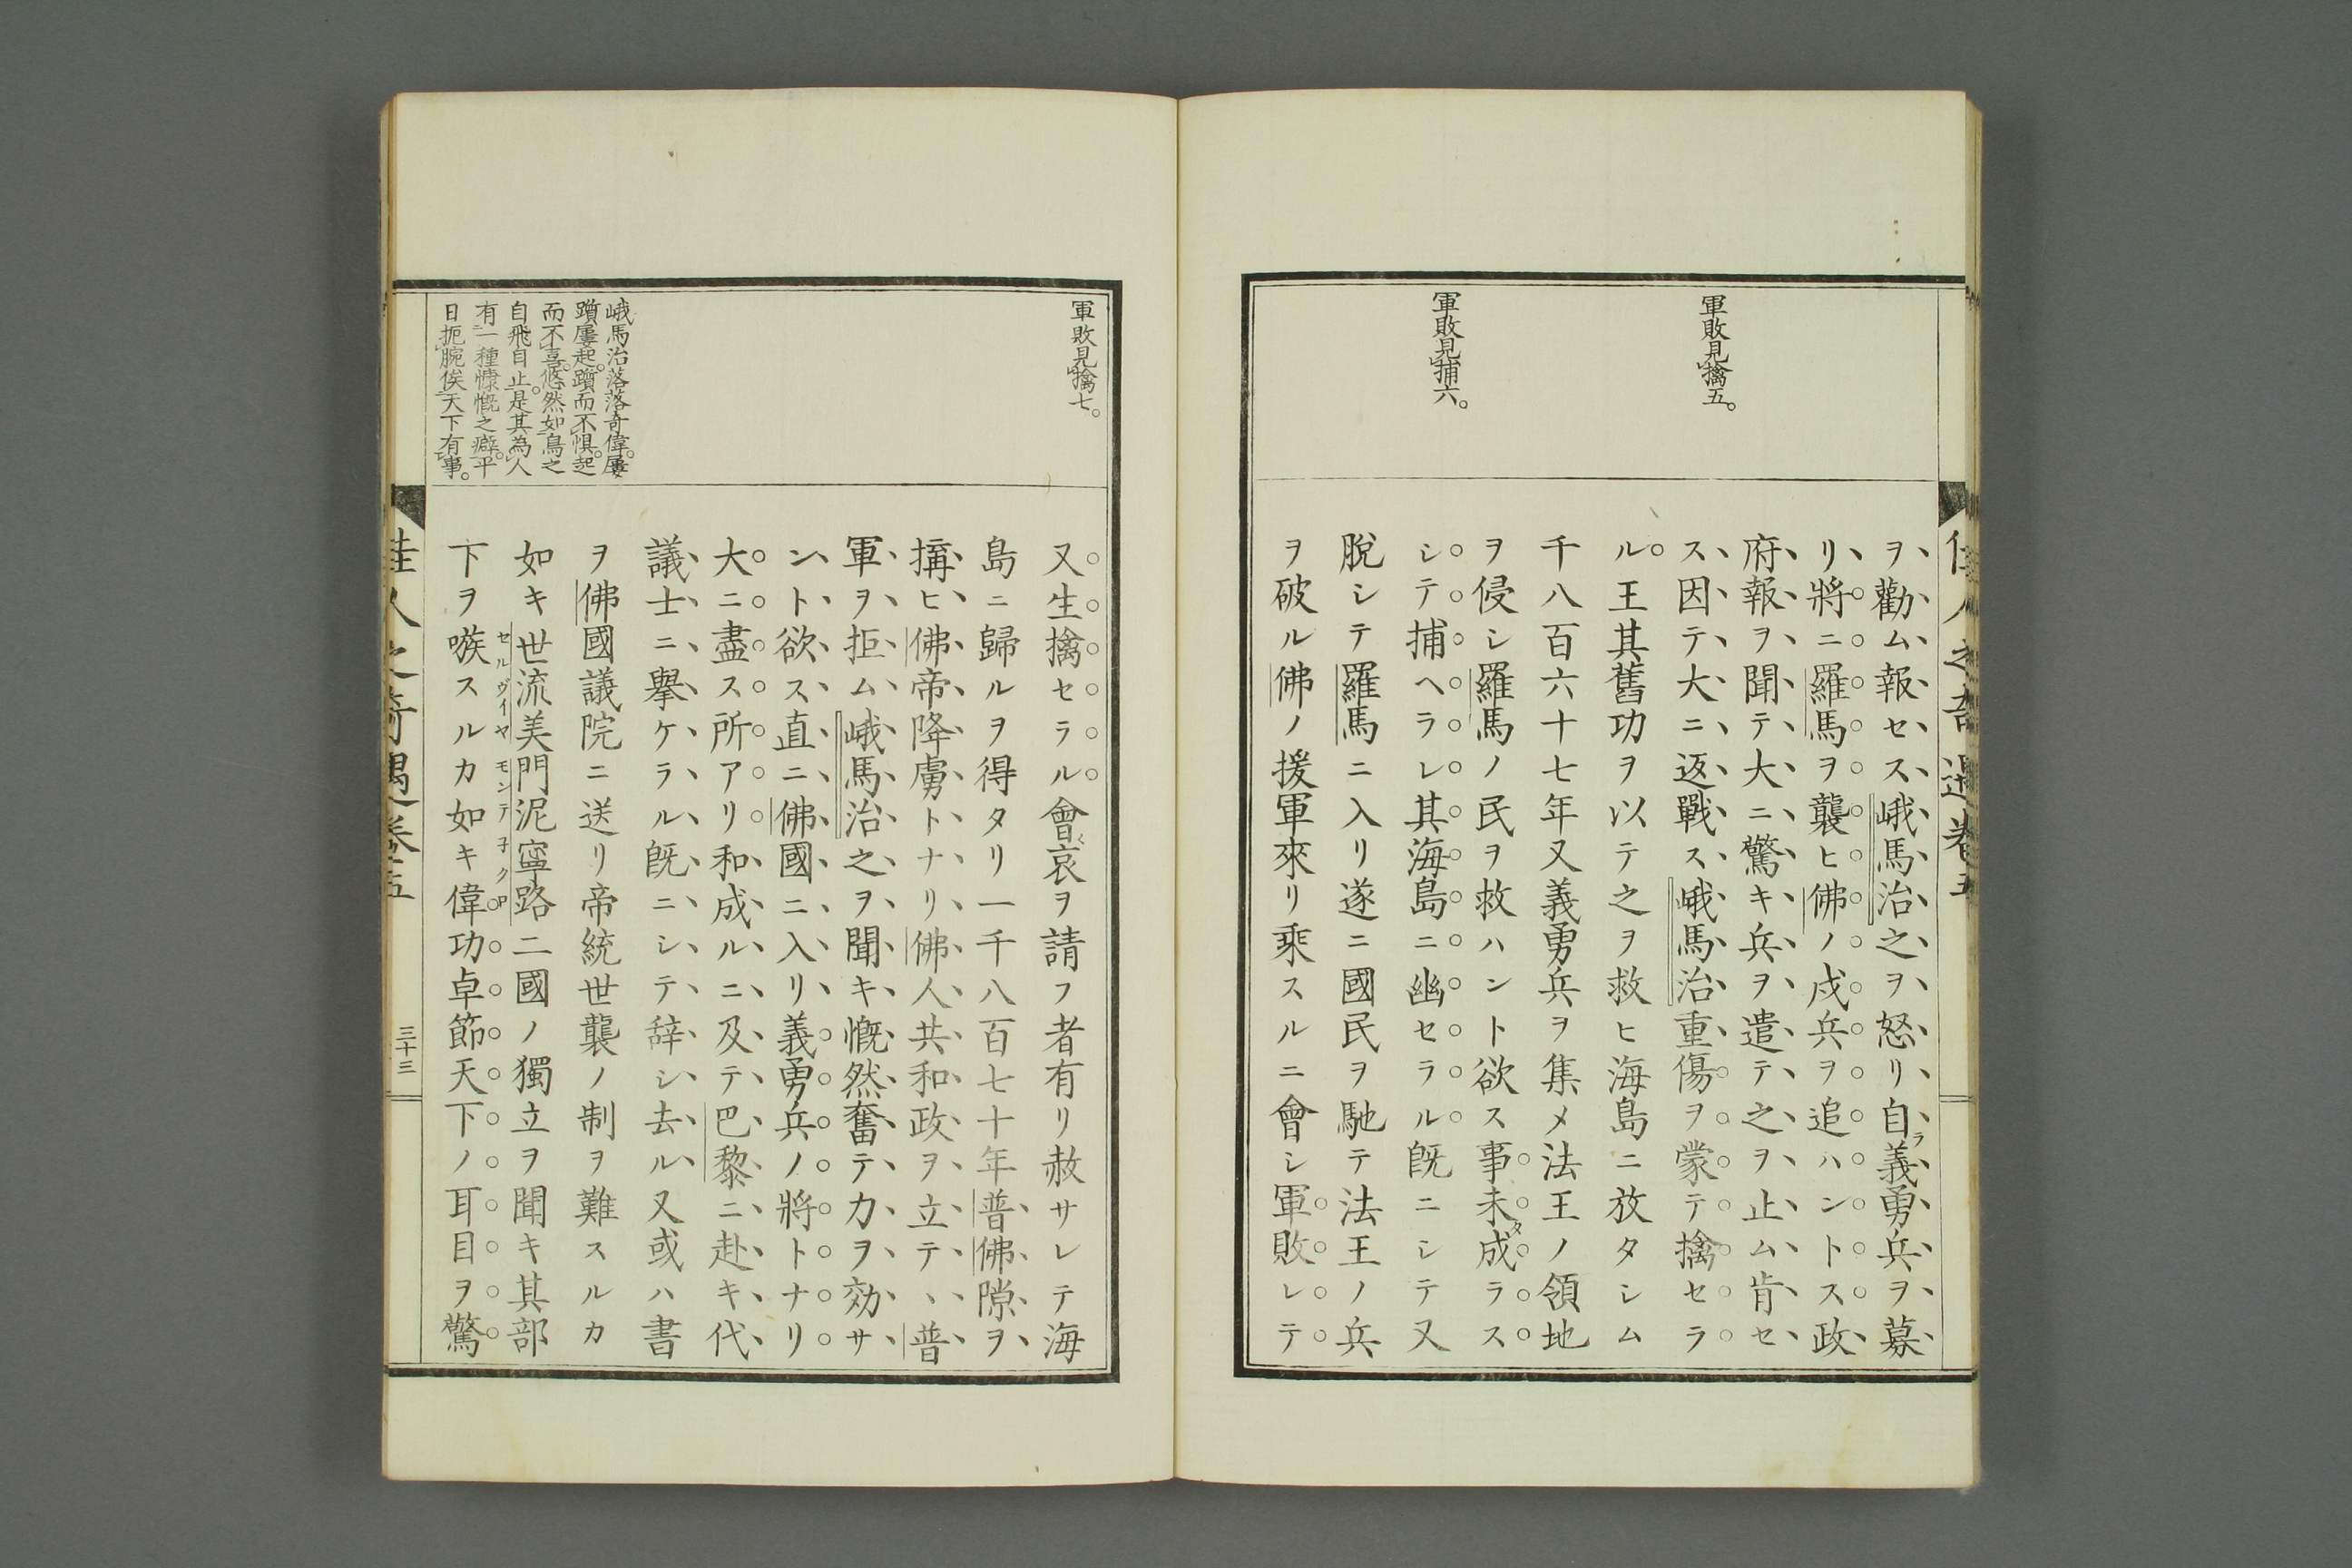 佳人之奇遇卷五
軍敗見擒五。
軍敗見捕六。
ヲ勸ム報セス峨馬治之ヲ怒リ自ラ義勇兵ヲ募
リ將ニ羅馬ヲ襲ヒ佛ノ戍兵ヲ追ハントス政
府報ヲ聞テ大ニ驚キ兵ヲ遣テ之ヲ止ム肯セ
ス因テ大ニ返戰ス峨馬治重傷ヲ蒙テ擒セラ
ル王其舊功ヲ以テ之ヲ救ヒ海島ニ放タシム
千八百六十七年又義勇兵ヲ集メ法王ノ領地
ヲ侵シ羅馬ノ民ヲ救ハント欲ス事未タ成ラス
シテ捕ヘラレ其海島ニ幽セラル既ニシテ又
脫シテ羅馬ニ入リ遂ニ國民ヲ馳テ法王ノ兵
ヲ破ル佛ノ援軍來リ乘スルニ會シ軍敗レテ
軍敗見擒七。
又生擒セラル會〻哀ヲ請フ者有リ赦サレテ海
島ニ歸ルヲ得タリ一千八百七十年普佛隙ヲ
搆ヒ佛帝降虜トナリ佛人共和政ヲ立テヽ普
軍ヲ拒ム峨馬治之ヲ聞キ慨然奮テ力ヲ効サ
ント欲ス直ニ佛國ニ入リ義勇兵ノ將トナリ
大ニ盡ス所アリ和成ルニ及テ巴黎ニ赴キ代
議士ニ擧ケラル既ニシテ辞シ去ル又或ハ書
ヲ佛國議院ニ送リ帝統世襲ノ制ヲ難スルカ
如キ世流美門泥寧路二國ノ獨立ヲ聞キ其部
セルヴイヤ モンテ子クロ
下ヲ嗾スルカ如キ偉功卓節天下ノ耳目ヲ驚
峨馬治落落奇偉。屢
躓屢起。躓而不惧。起
而不喜。悠然如鳥之
自飛自止。是其為人
有一種慷慨之癖。平
日扼腕俟天下有事。
佳人之奇遇卷五
三十三